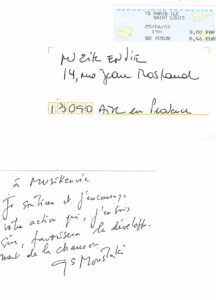 REPUBLIQUE FRANCAISE
75 PARIS ILE
SAINT LOUIS
19H
3,00
0,46 EUR
MUZIK ENVIE
14, rue Jean Rostand
13090 Aix en Provence
à Musikenvie
Je soutiens et j'encourage
votre action qui, j'en suis
sûr, favorisera le développe-
ment de la chanson
GS Moustaki